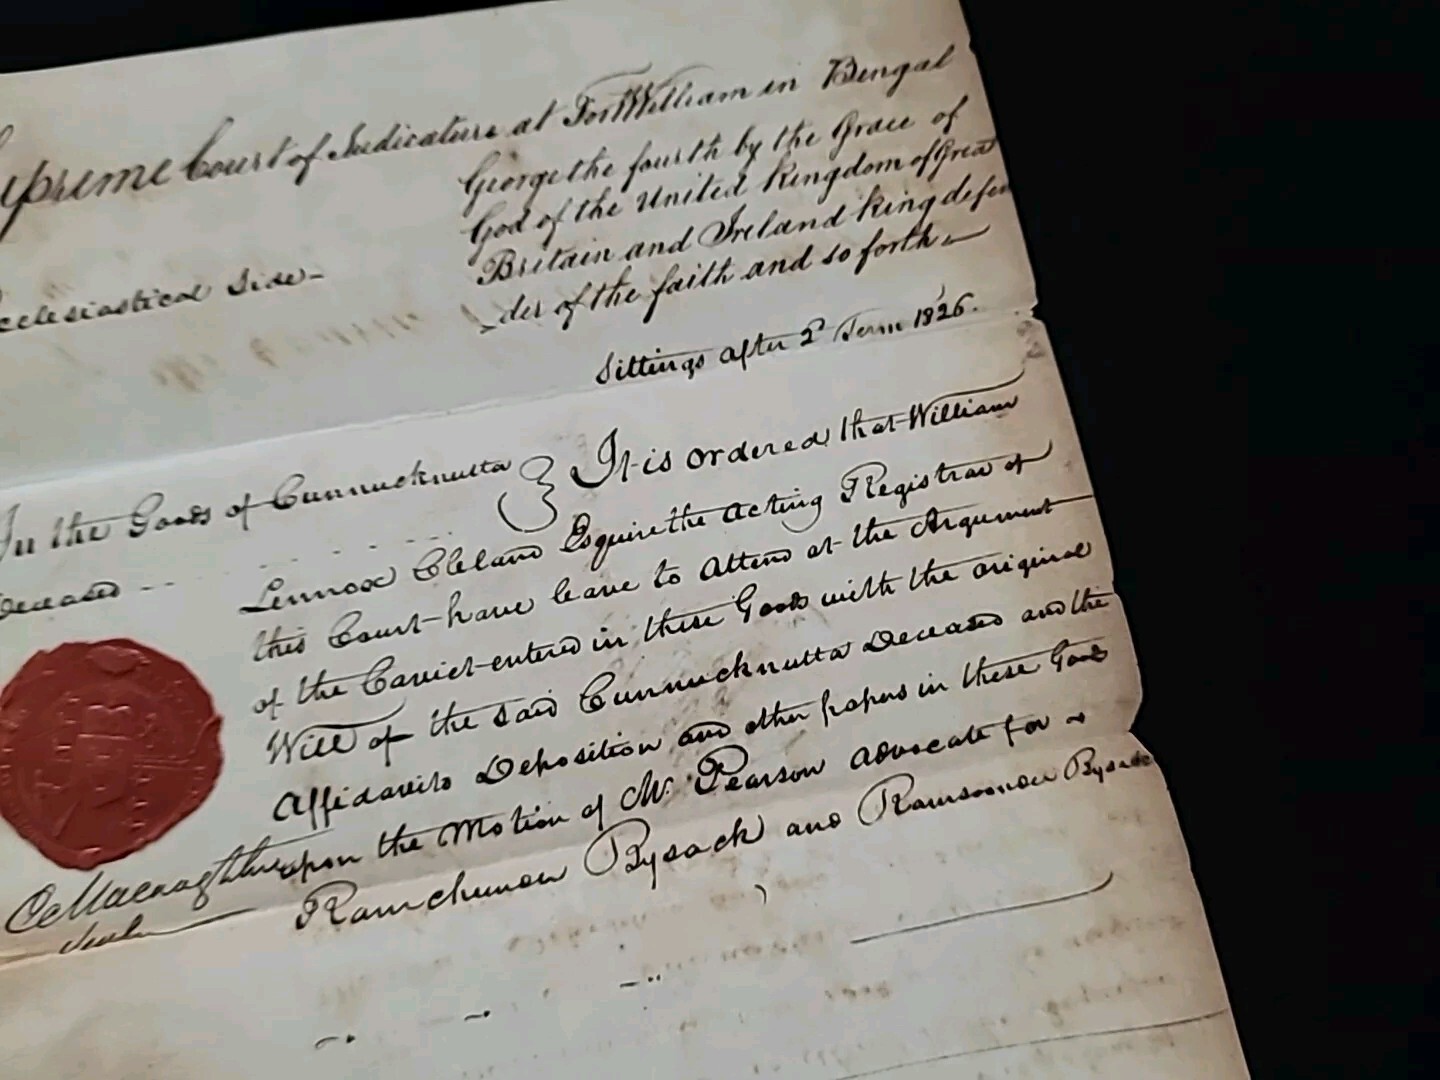 Supreme Court of Judicature at Fort William in Bengal
George the fourth by the Grace of
God of the United Kingdom of Great
Britain and Ireland King defen
Ecclesiastical Side -
_der of the faith and so forth
Sittings after 2d Term 1826.
In the Goods of Cunnucknutta
It is ordered that William
Deceased
Lennox Cleland Esquire the acting Registrar of
this Court have leave to Attend at the Argument
of the Caviet entered in these Goods with the original
Will of the said Cunnucknutta Deceased and the
Affidavits Deposition and other papers in these Goods
upon the Motion of Mr. Pearson advocate for
Ramchunder Bysack and Ramsoonder Bysack